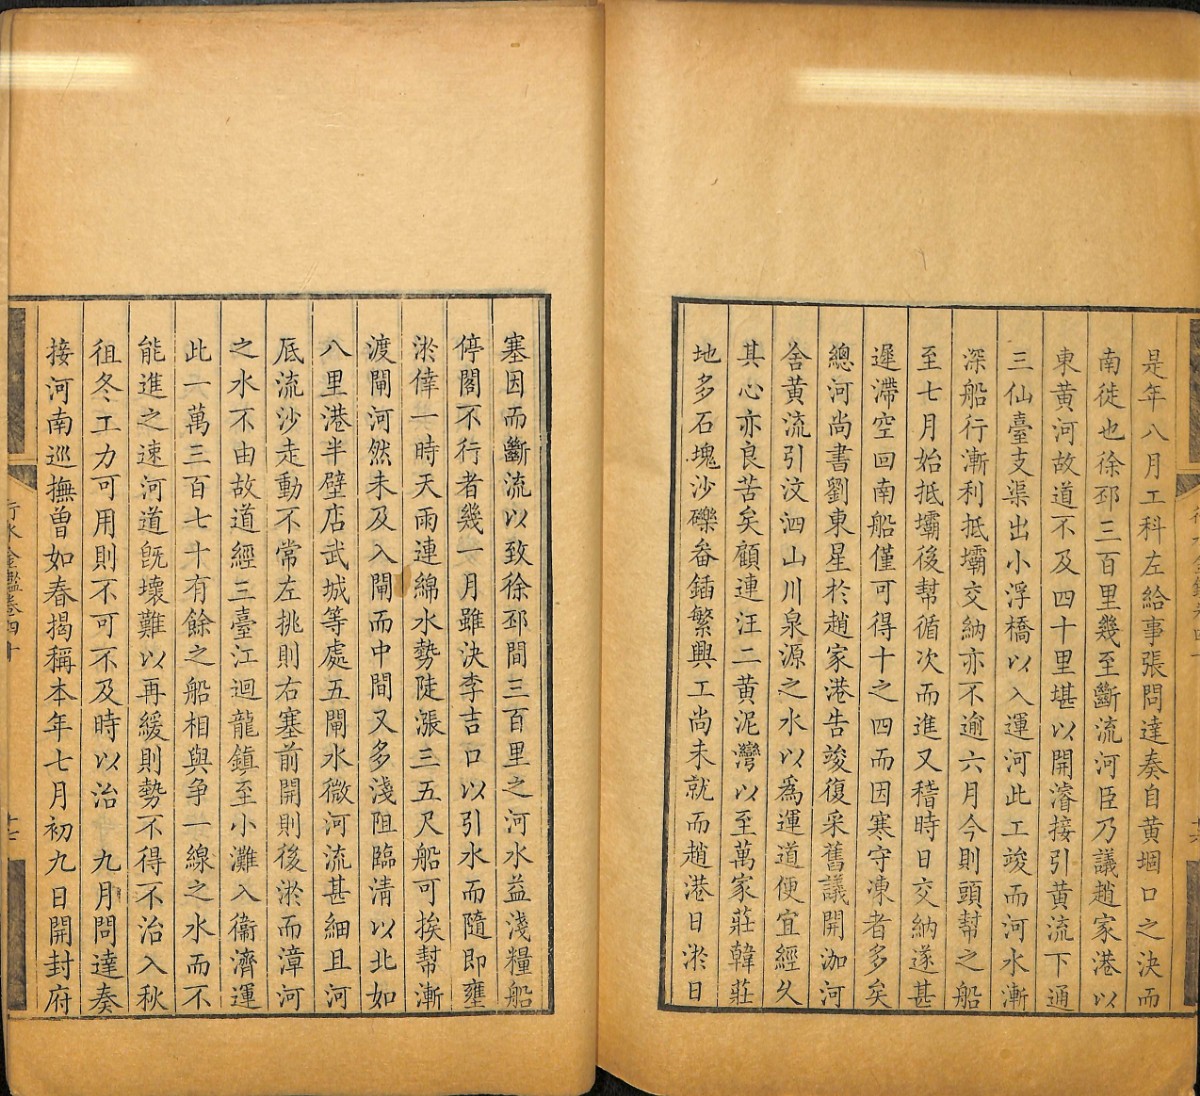 是年八月工科左給事張問達奏自黃堌口之決而
南徙也徐邳三百里幾至斷流河臣乃議趙家港以
東黃河故道不及四十里堪以開濬接引黃流下通
三仙臺支渠出小浮橋以入運河此工竣而河水漸
深船行漸利抵壩交納亦不逾六月今則頭幫之船
至七月始抵壩後幫循次而進又稽時日交納遂甚
遲滯空回南船僅可得十之四而因寒守凍者多矣
總河尚書劉東星於趙家港告竣復采舊議開泇河
舍黃流引汶泗山川泉源之水以為運道便宜經久
其心亦良苦矣顧連汪二黃泥灣以至萬家莊韓莊
地多石塊沙礫畚鍤繁興工尚未就而趙港日淤日
塞因而斷流以致徐邳間三百里之河水益淺糧船
停閣不行者幾一月雖決李吉口以引水而隨即壅
淤倖一時天雨連綿水勢陡漲三五尺船可挨幫漸
渡閘河然未及入閘而中間又多淺阻臨清以北如
八里港半壁店武城等處五閘水微河流甚細且河
底流沙走動不常左挑則右塞前開則後淤而漳河
之水不由故道經三臺江迴龍鎮至小灘入衞濟運
此一萬三百七十有餘之船相與争一線之水而不
能進之速河道旣壞難以再緩則勢不得不治入秋
徂冬工力可用則不可不及時以治 九月問達奏
接河南巡撫曽如春揭稱本年七月初九日開封府
行水金鑑卷四十